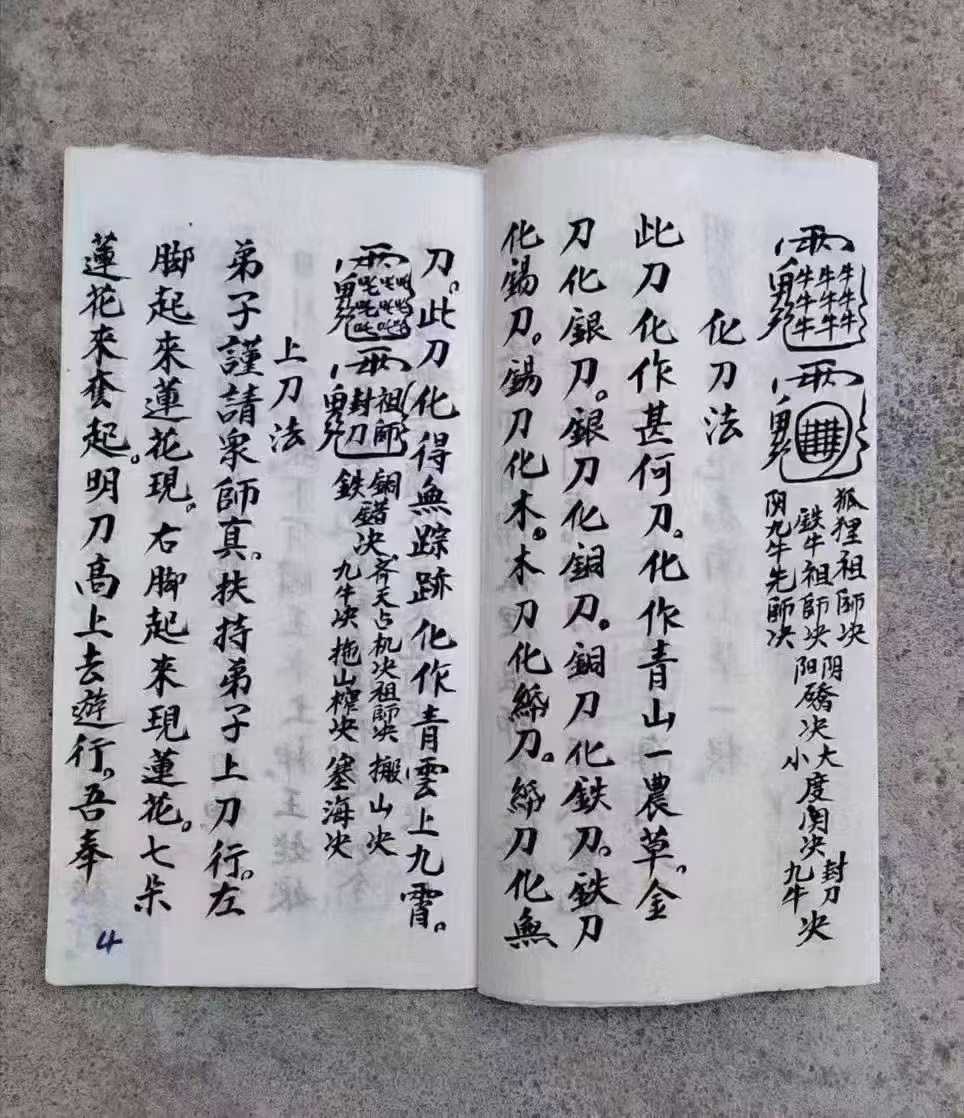 牛牛牛牛牛牛牛牛牛
狐狸祖師决
鉄牛祖師决
阴九牛先師决
阴阳
决
大小度関决
封刀
九牛决
化刀法
此刀化作甚何刀。化作青山一農草。金
刀化銀刀。銀刀化銅刀。銅刀化鉄刀。鉄刀
化錫刀。錫刀化木。木刀化紙刀。紙刀化無
刀。此刀化得無踪跡化作青雲上九霄。
祖師
封刀
銅錯决
齐天占机决祖師决
搬山决
鉄
九牛决
拖山榨决
塞海决
上刀法
弟子謹請衆師真。扶持弟子上刀行。左
脚起來蓮花現。右脚起來現蓮花。七朵
蓮花來套起。明刀高上去遊行。吾奉
4